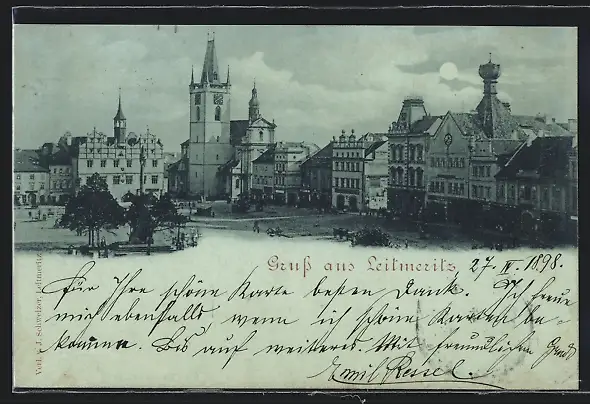 Gruß aus Leitmeritz
27. IV. 1898.
Für Ihre schöne Karte besten Dank. Ich freue
mich ebenfalls wenn ich schöne Karten be-
komme. Bis auf weiteres. Mit freundlichem Gruß
Emil Ressel.
Verl. v. J. Schweizer, Leitmeritz.